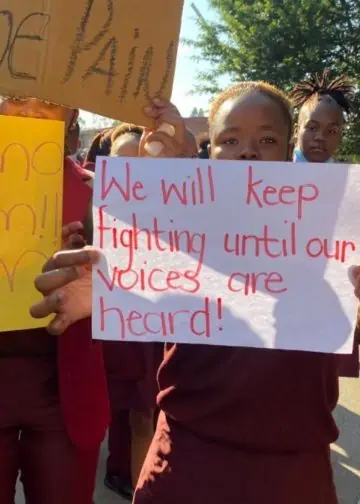 Pain
no
We will keep
fighting until our
voices are
heard!